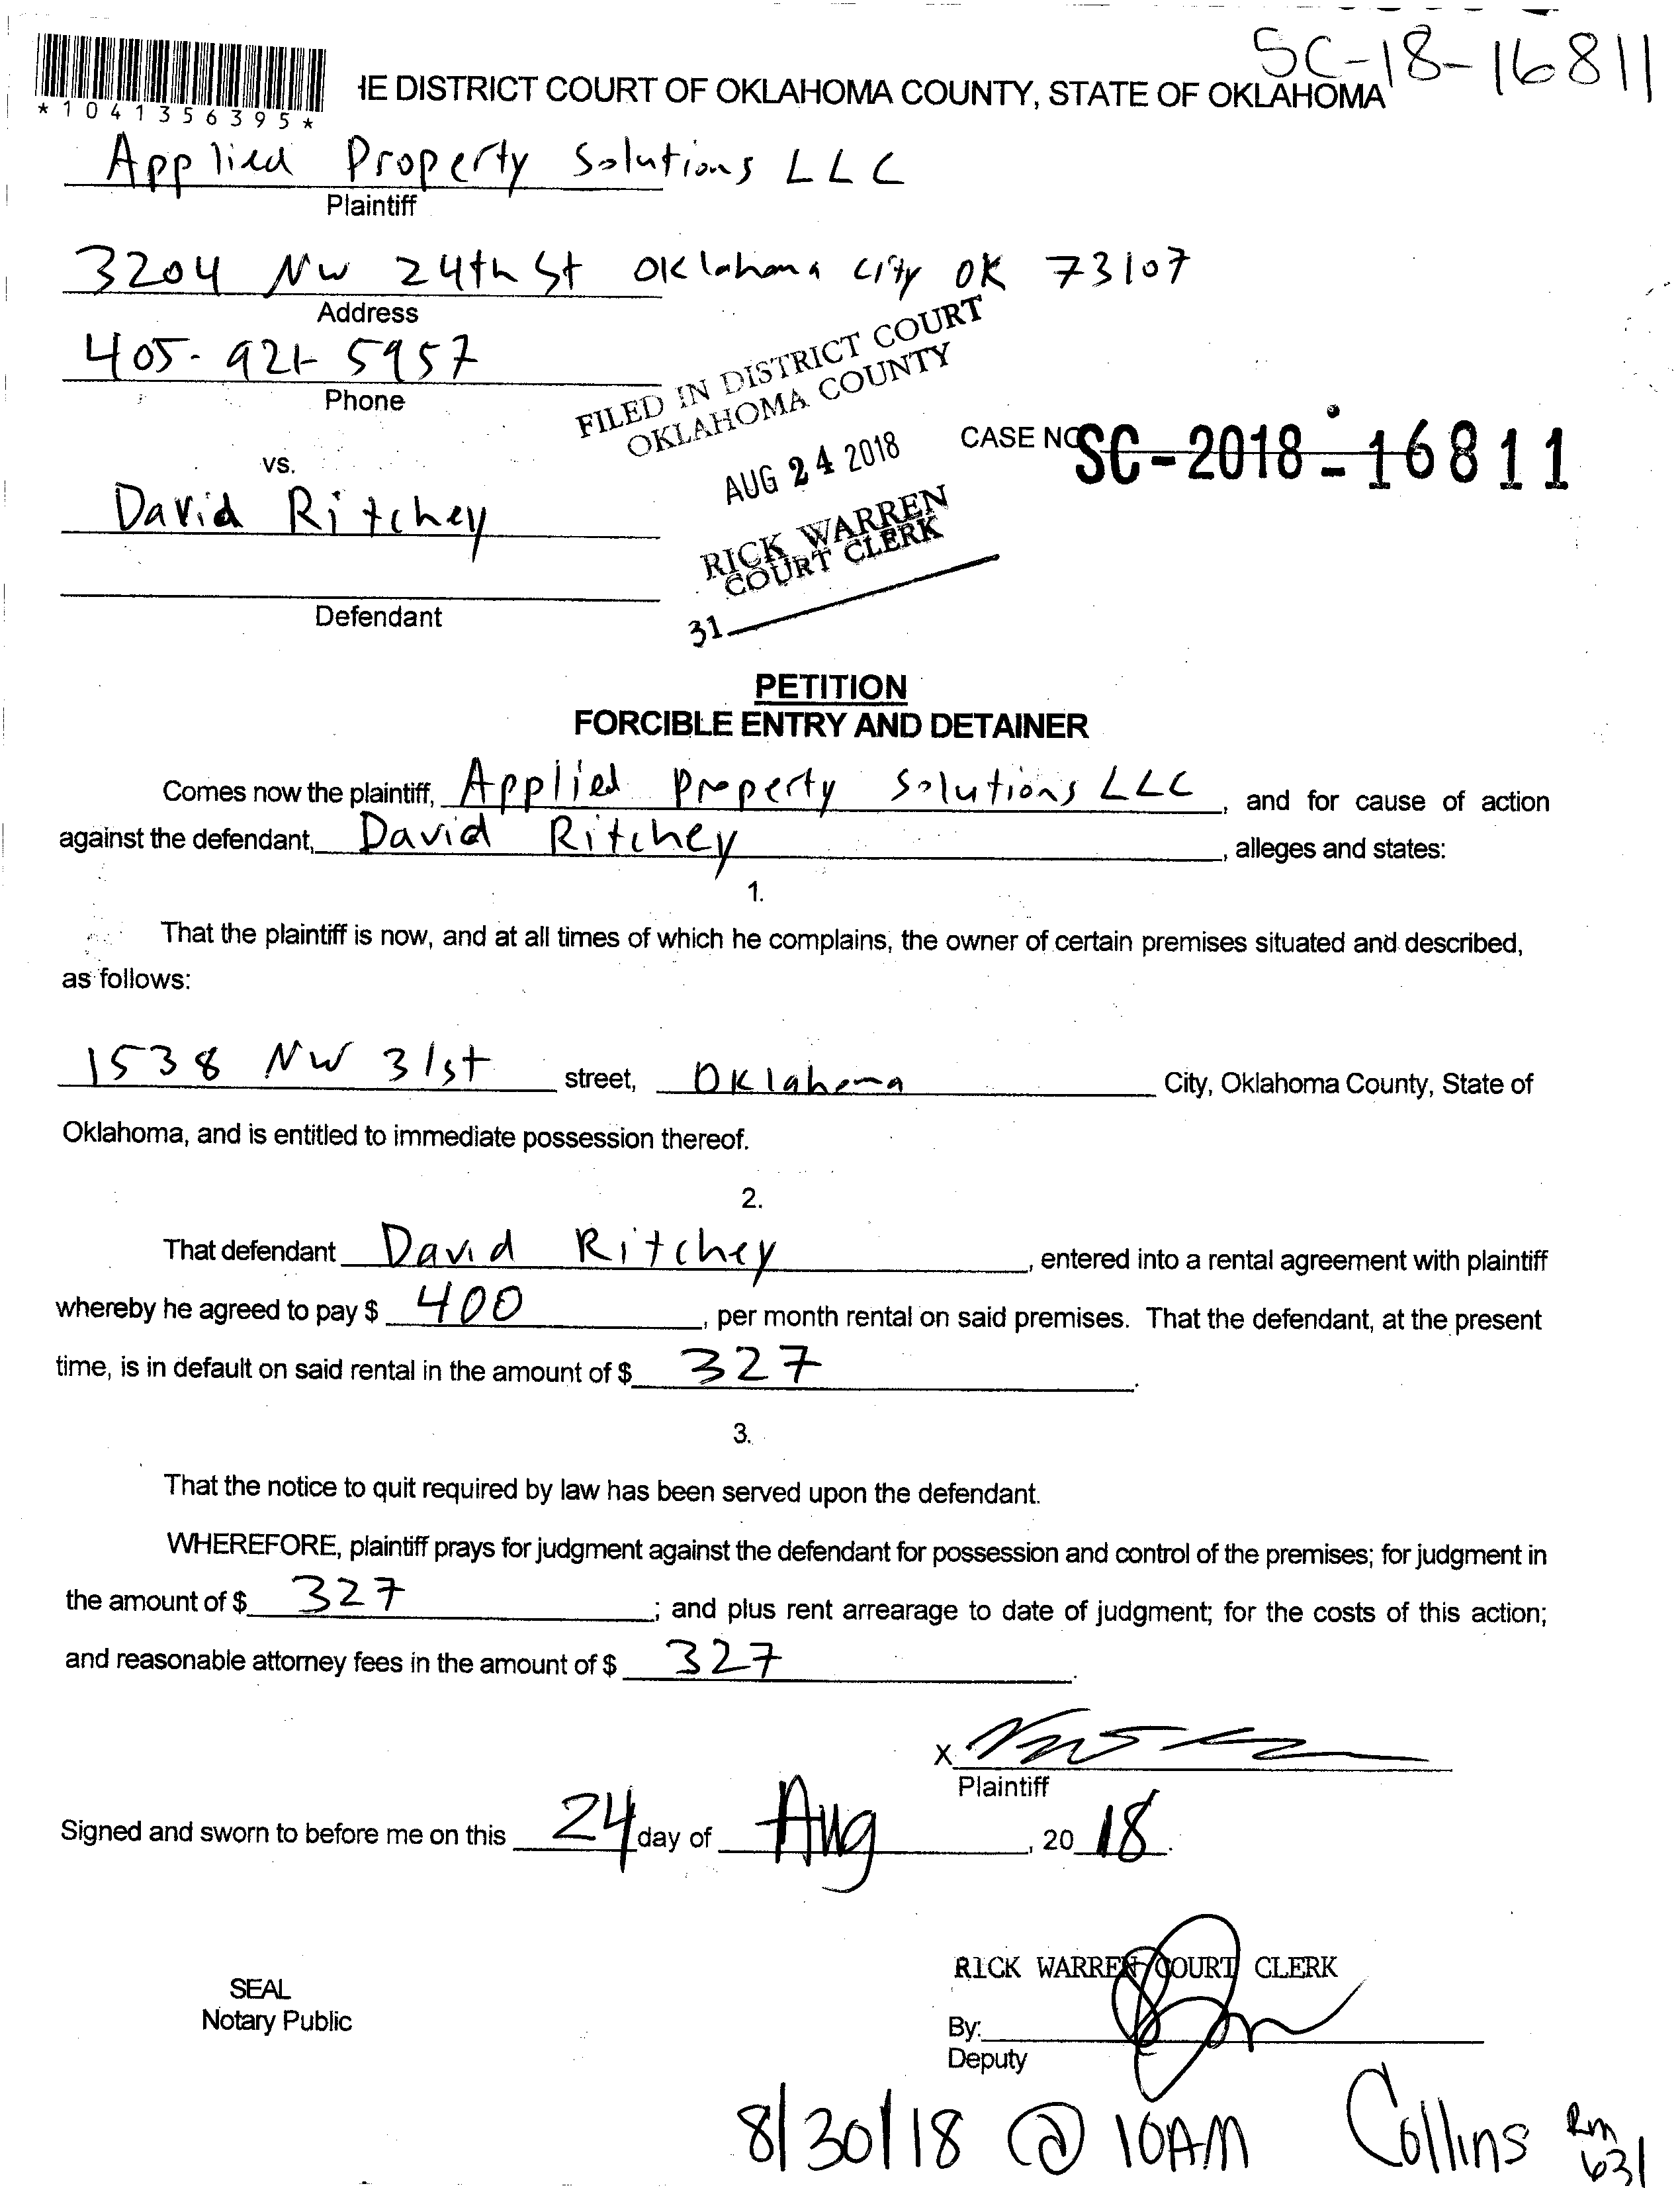 SC-18-16811
*1041356395*
HE DISTRICT COURT OF OKLAHOMA COUNTY, STATE OF OKLAHOMA
Applied Property Solutions LLC
Plaintiff
3204 NW 24th St Oklahoma City OK 73107
Address
405-921-5957
Phone
FILED IN DISTRICT COURT
OKLAHOMA COUNTY
AUG 24 2018
RICK WARREN
COURT CLERK
31
CASE NO SC-2018-16811
vs.
David Ritchey
Defendant
PETITION
FORCIBLE ENTRY AND DETAINER
Comes now the plaintiff, Applied Property Solutions LLC, and for cause of action
against the defendant, David Ritchey, alleges and states:
1.
That the plaintiff is now, and at all times of which he complains, the owner of certain premises situated and described,
as follows:
1538 NW 31st street, Oklahoma City, Oklahoma County, State of
Oklahoma, and is entitled to immediate possession thereof.
2.
That defendant David Ritchey, entered into a rental agreement with plaintiff
whereby he agreed to pay $ 400, per month rental on said premises. That the defendant, at the present
time, is in default on said rental in the amount of $ 327.
3.
That the notice to quit required by law has been served upon the defendant.
WHEREFORE, plaintiff prays for judgment against the defendant for possession and control of the premises; for judgment in
the amount of $ 327; and plus rent arrearage to date of judgment; for the costs of this action;
and reasonable attorney fees in the amount of $ 327.
X
Plaintiff
Signed and sworn to before me on this 24 day of Aug, 20 18.
RICK WARREN COURT CLERK
SEAL
Notary Public
By:
Deputy
8/30/18 @ 10AM Collins Rm
631